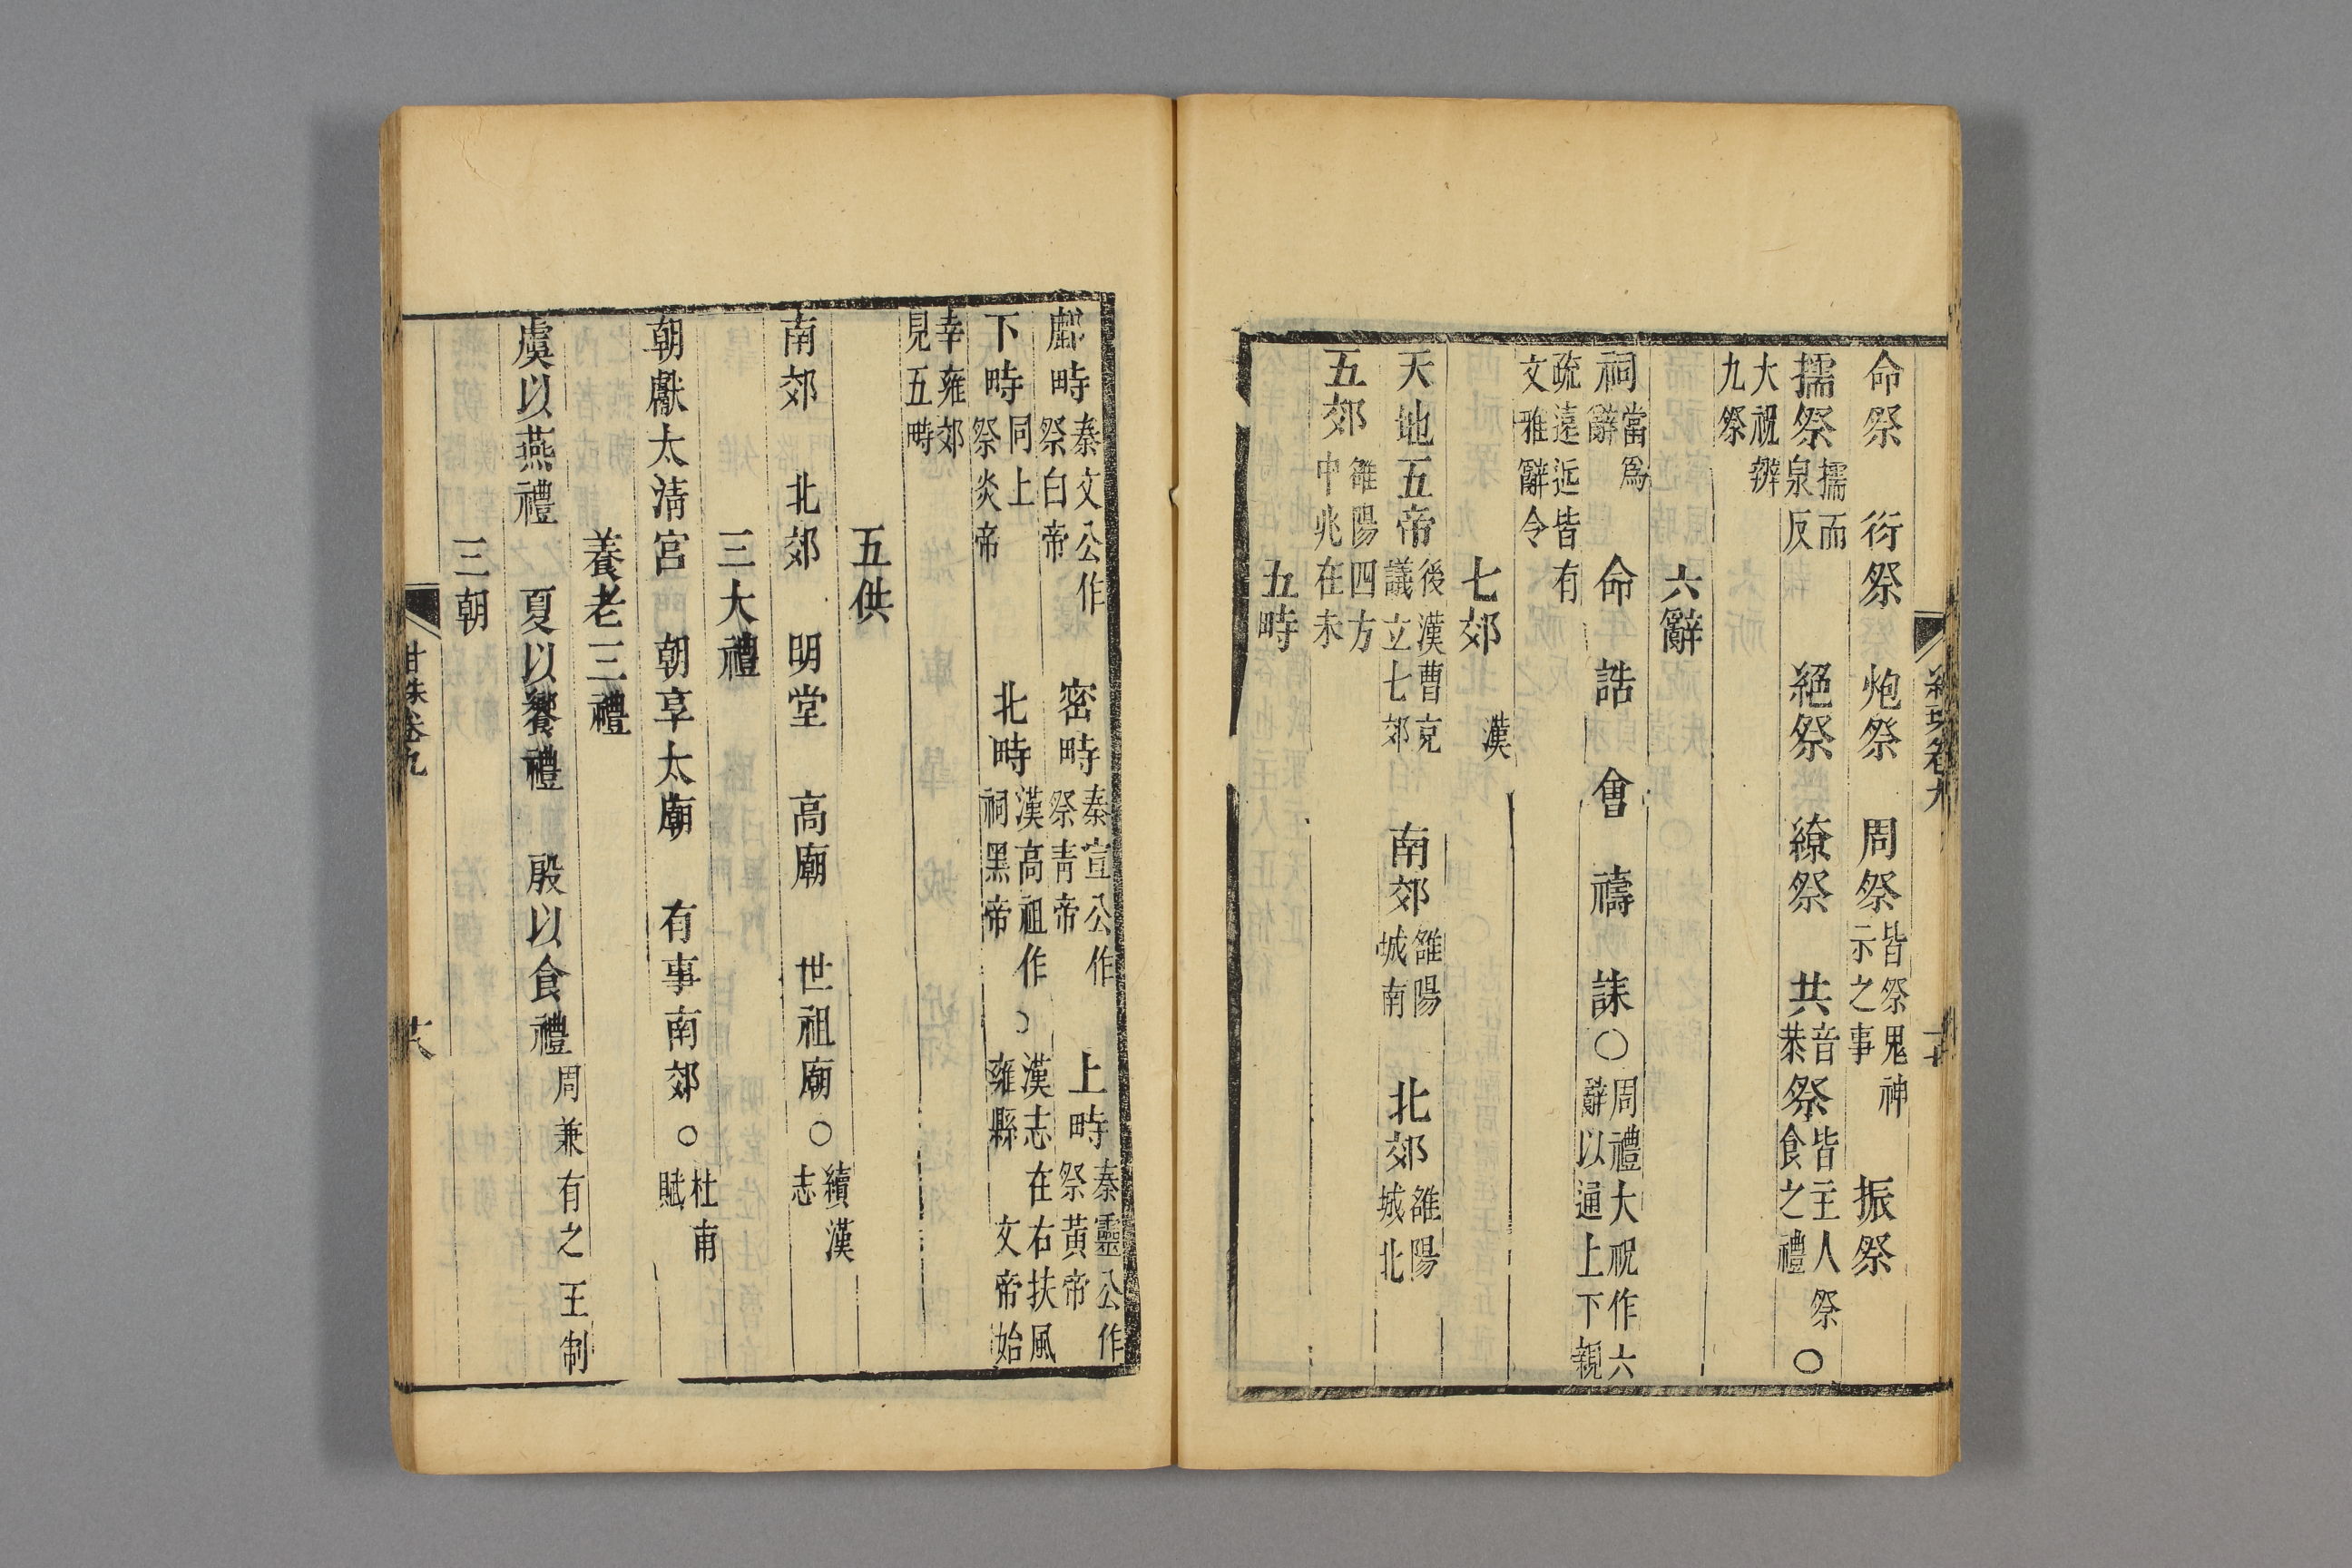 命祭　衍祭　炮祭　周祭皆祭鬼神示之事　振祭
擩祭擩而泉反　絕祭　繚祭　共音恭祭皆主人祭食之禮○
大祝辨九祭
六辭
祠當爲辭　命　誥　會　禱　誄○周禮大祝作六辭以通上下親
疏遠近皆有文雅辭令
七郊　漢
天地五帝後漢曹充議立七郊　南郊雒陽城南　北郊雒陽城北
五郊雒陽四方中兆在未
五畤
鄜畤秦文公作祭白帝　密畤秦宣公作祭青帝　上畤秦靈公作祭黃帝
下畤同上祭炎帝　北畤漢高祖作祠黑帝○漢志在右扶風雍縣　文帝始
幸雍郊見五畤
五供
南郊　北郊　明堂　高廟　世祖廟○續漢志
三大禮
朝獻太清宮　朝享太廟　有事南郊○杜甫賦
養老三禮
虞以燕禮　夏以饗禮　殷以食禮周兼有之王制
三朝
卷九